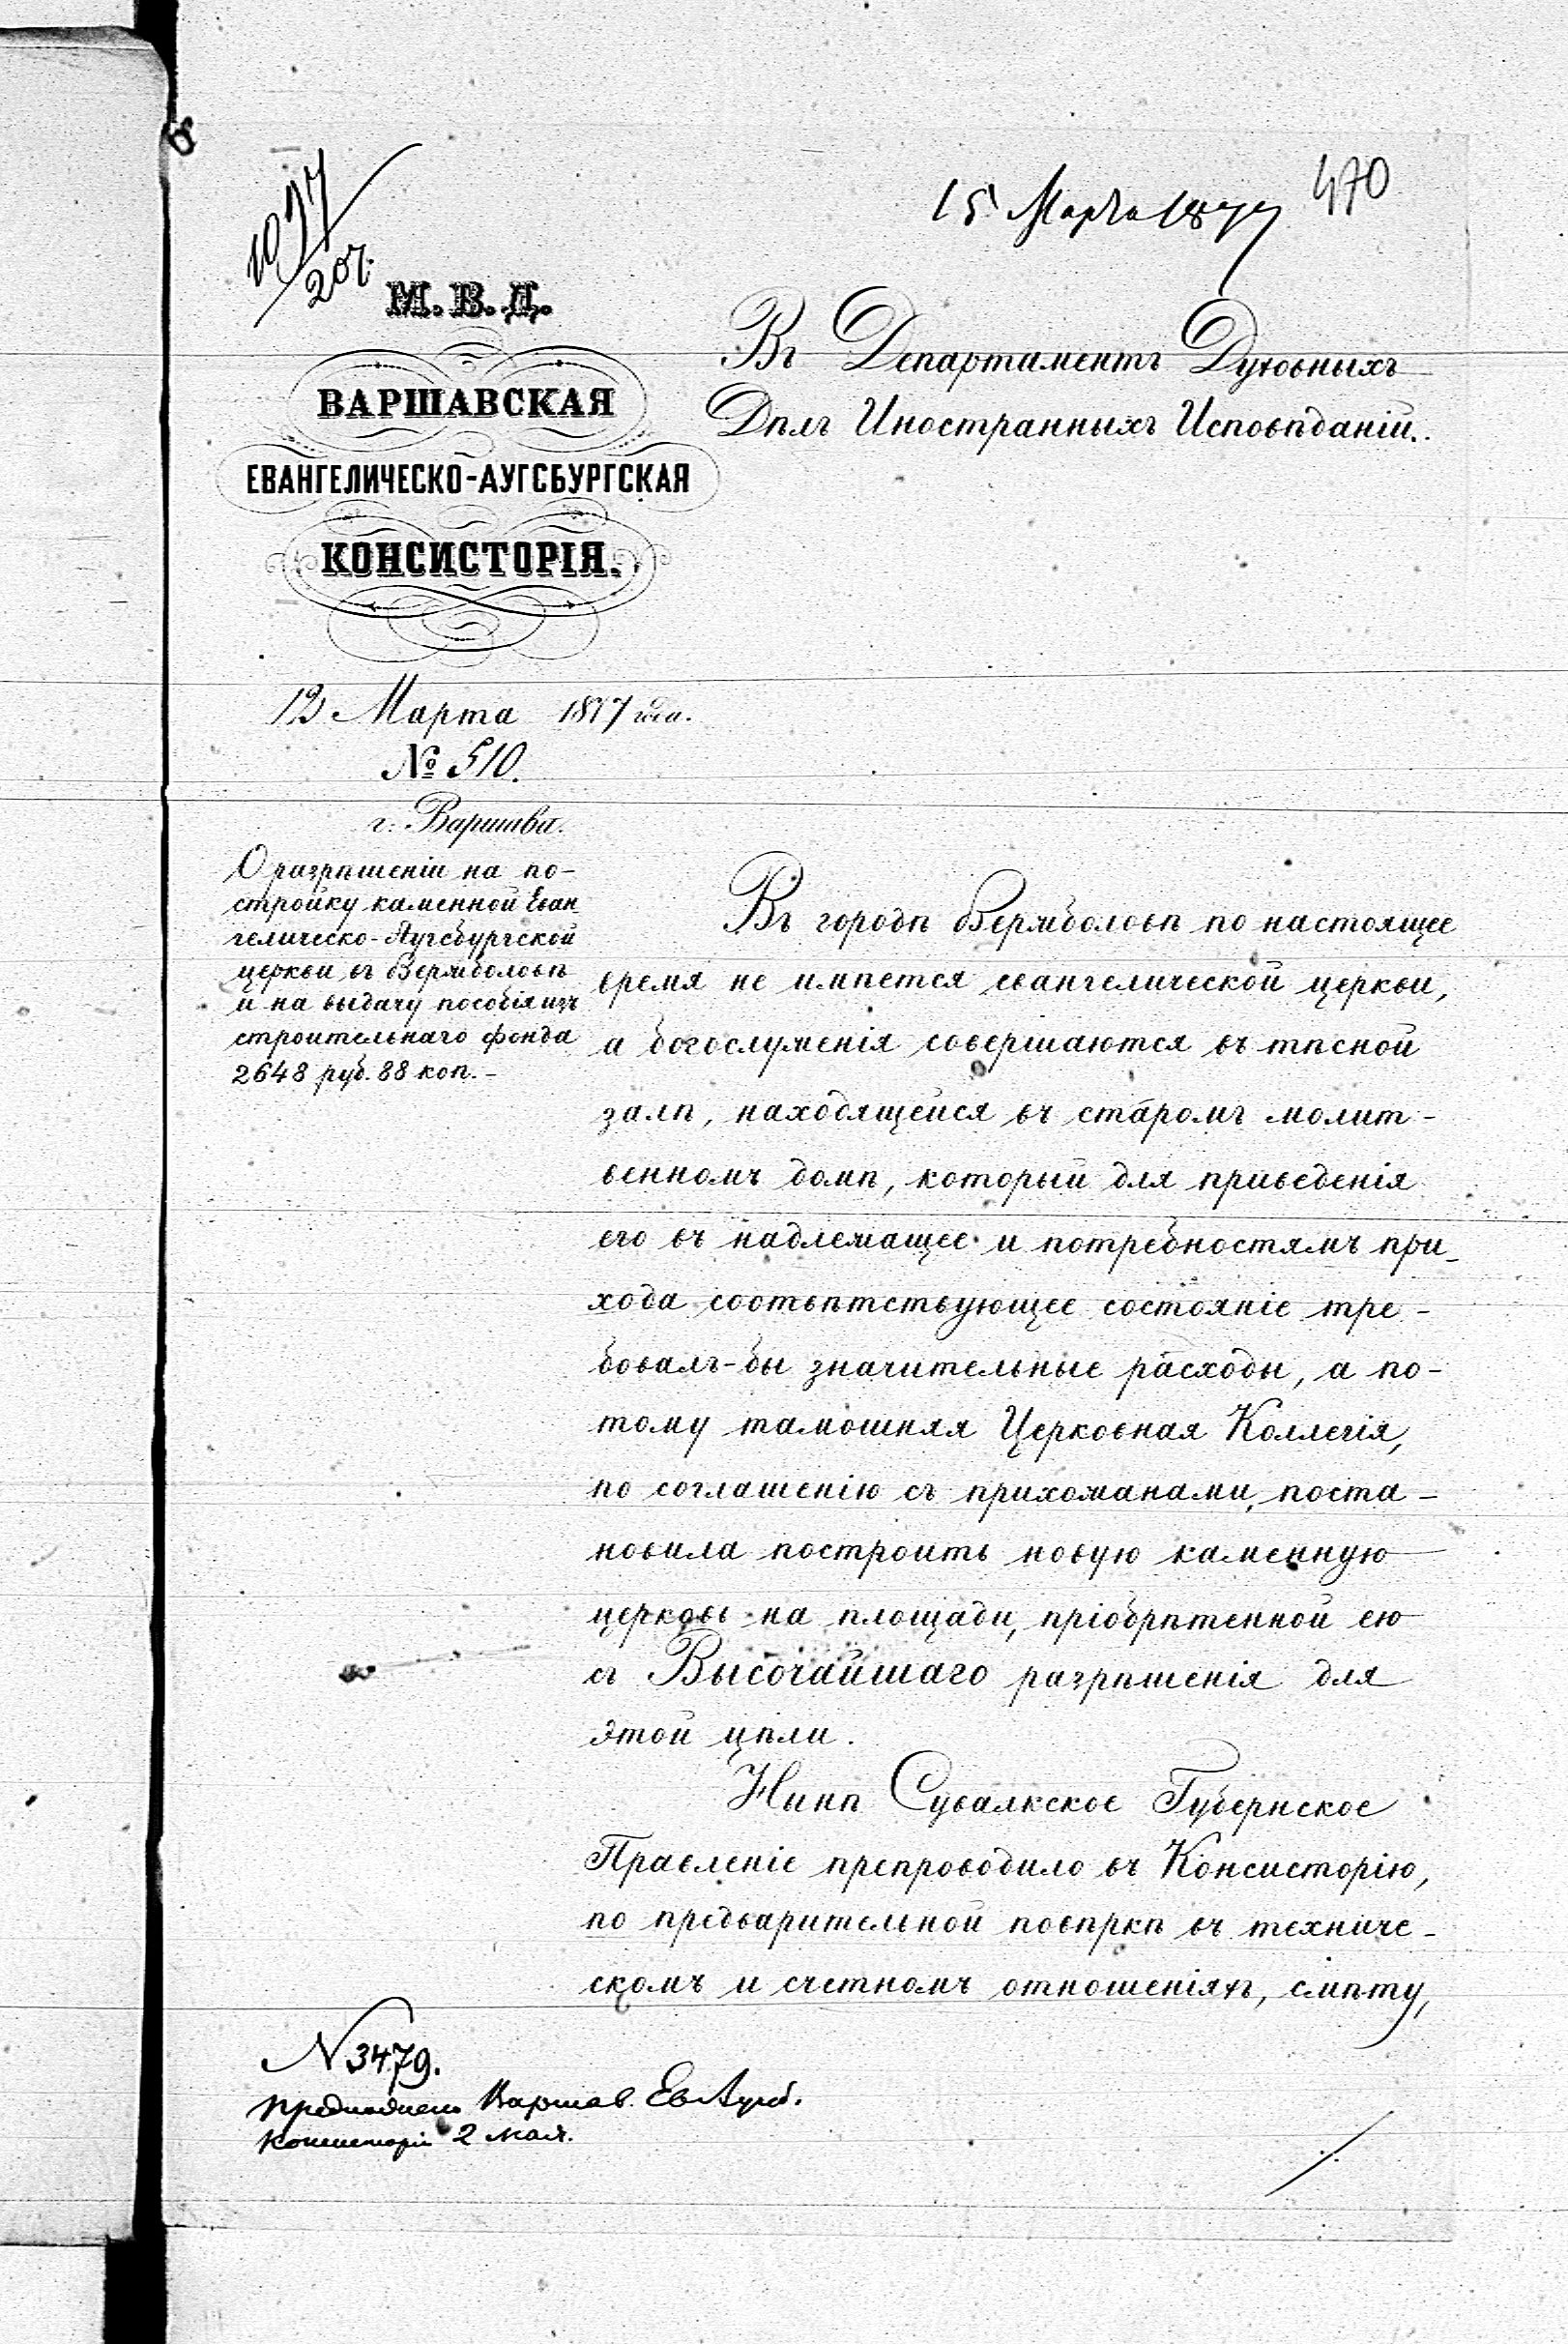 1077/207.
15 Марта 1877
470
М. В. Д.
ВАРШАВСКАЯ
ЕВАНГЕЛИЧЕСКО-АУГСБУРГСКАЯ
КОНСИСТОРІЯ.
12 Марта 1877 года.
№ 510.
г. Варшава.
Въ Департаментъ Духовныхъ
Дѣлъ Иностранныхъ Исповѣданій.
О разрѣшеніи на по-
стройку каменной Еван
гелическо-Аугсбургской
церкви въ Вержболовѣ
и на выдачу пособія изъ
строительнаго фонда
2648 руб. 88 коп. -
Въ городѣ Вержболовѣ по настоящее
время не имѣется евангелической церкви,
а богослуженія совершаются въ тѣсной
залѣ, находящейся въ старомъ молит-
венномъ домѣ, который для приведенія
его въ надлежащее и потребностямъ при-
хода соотвѣтствующее состояніе тре-
бовалъ-бы значительные расходы, а по-
тому тамошняя Церковная Коллегія,
по соглашенію съ прихожанами, поста-
новила построить новую каменную
церковь на площади, пріобрѣтенной ею
съ Высочайшаго разрѣшенія для
этой цѣли.
Нынѣ Сувалкское Губернское
Правленіе препроводило въ Консисторію,
по предварительной повѣркѣ въ техниче-
скомъ и счетномъ отношеніяхъ, смѣту,
N 3479.
Варшав. Ев Аугсб.
Консисторіи 2 мая.